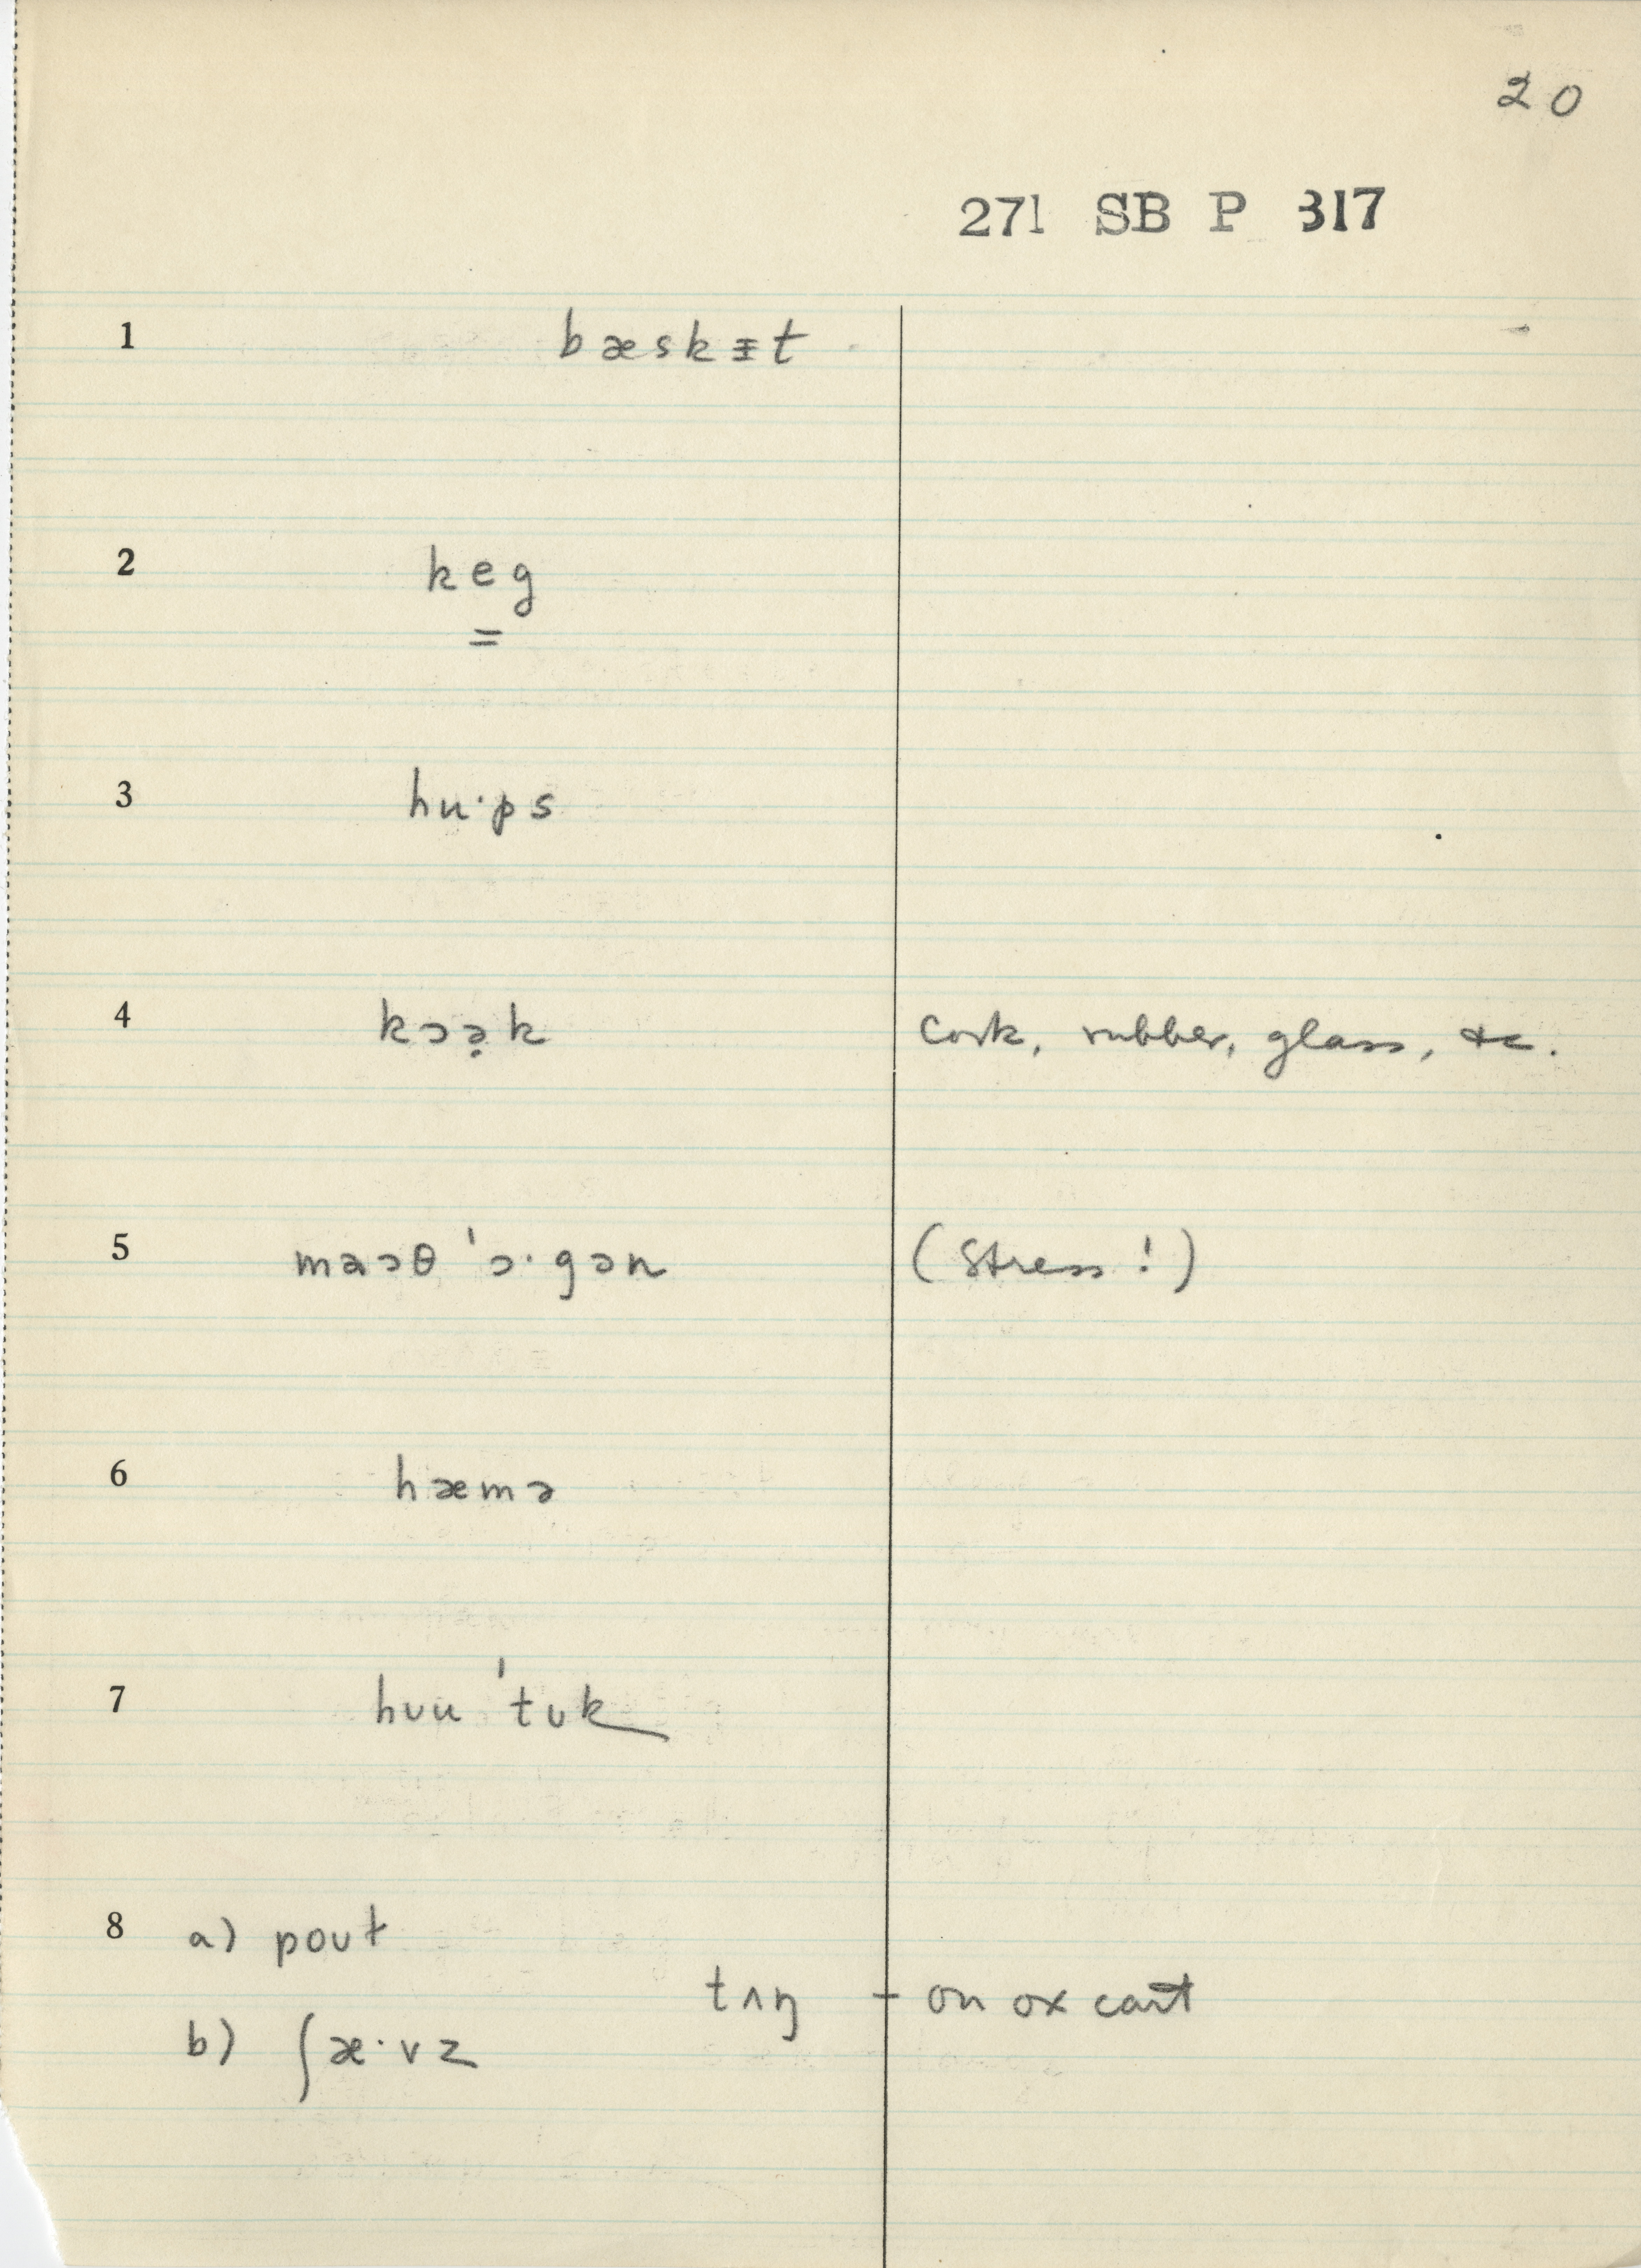 20
271 SB P 317
1 bæskᵻt
2 keg
=
3 hu·ps
4 kɔə̣k cork, rubber, glass, &c.
5 maɔθ 'ɔ·gən (Stress!)
6 hæmə
7 hʊu 'tʊk
8 a) poʊt
tʌŋ – on ox cart
b) ʃæ·vz